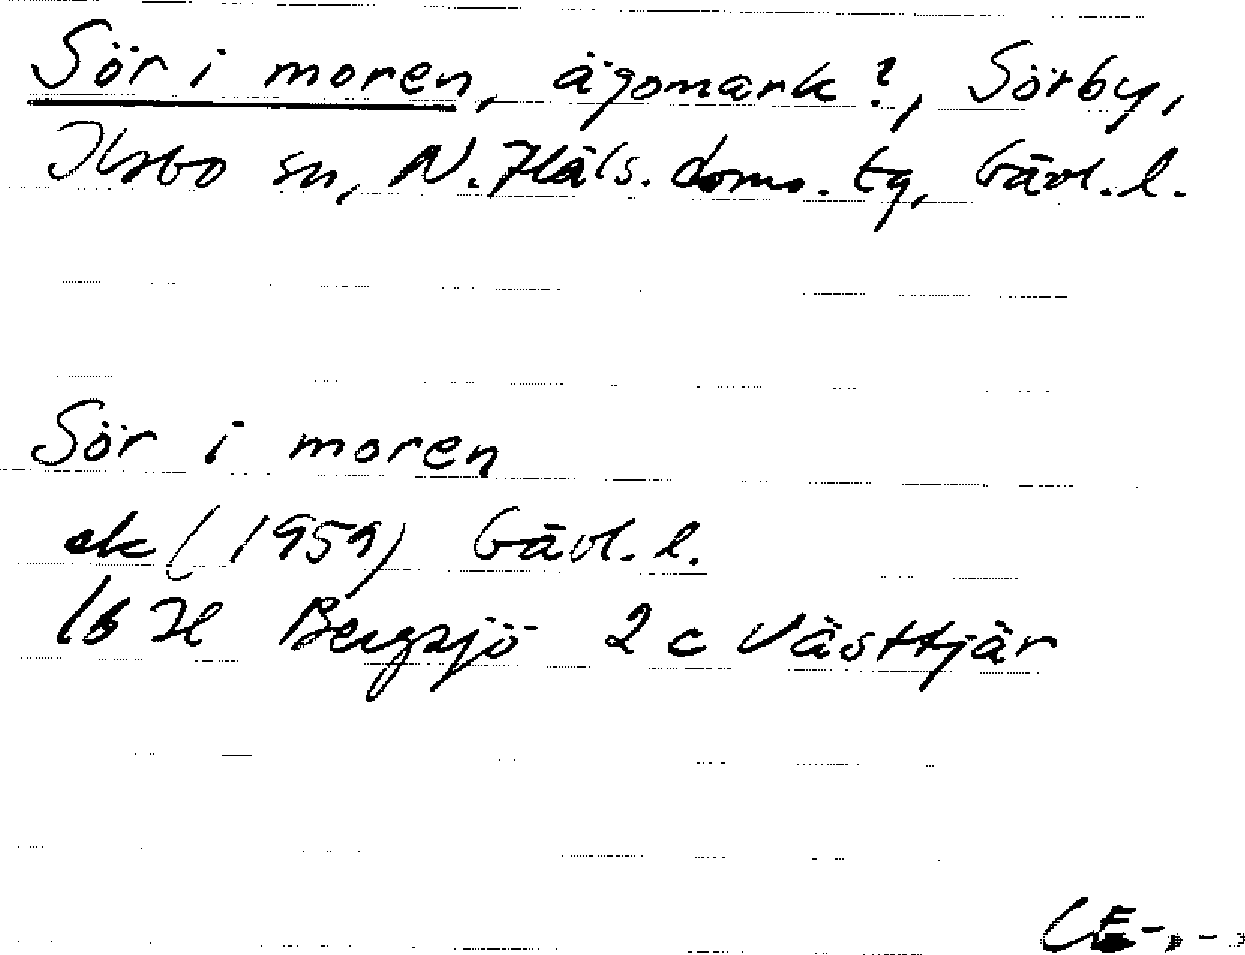 Sör i moren, ägomark?, Sörby,
Ilsbo sn, N. Häls. doms. tg, Gävl. l.
Sör i moren
ek (1959) Gävl. l.
16 H Bergsjö 2 c Västtjär